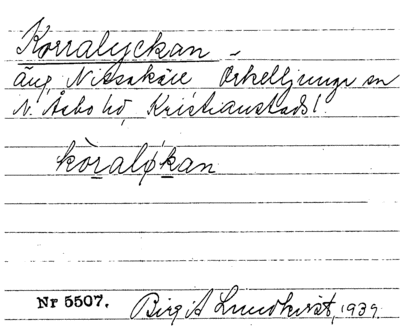 Korralyckan –
äng, Nitsakäie Örkelljunga sn
N. Åsbo hd, Kristianstads l.
kòraløkan
Nr 5507.
Birgit Lundkvist, 1939.